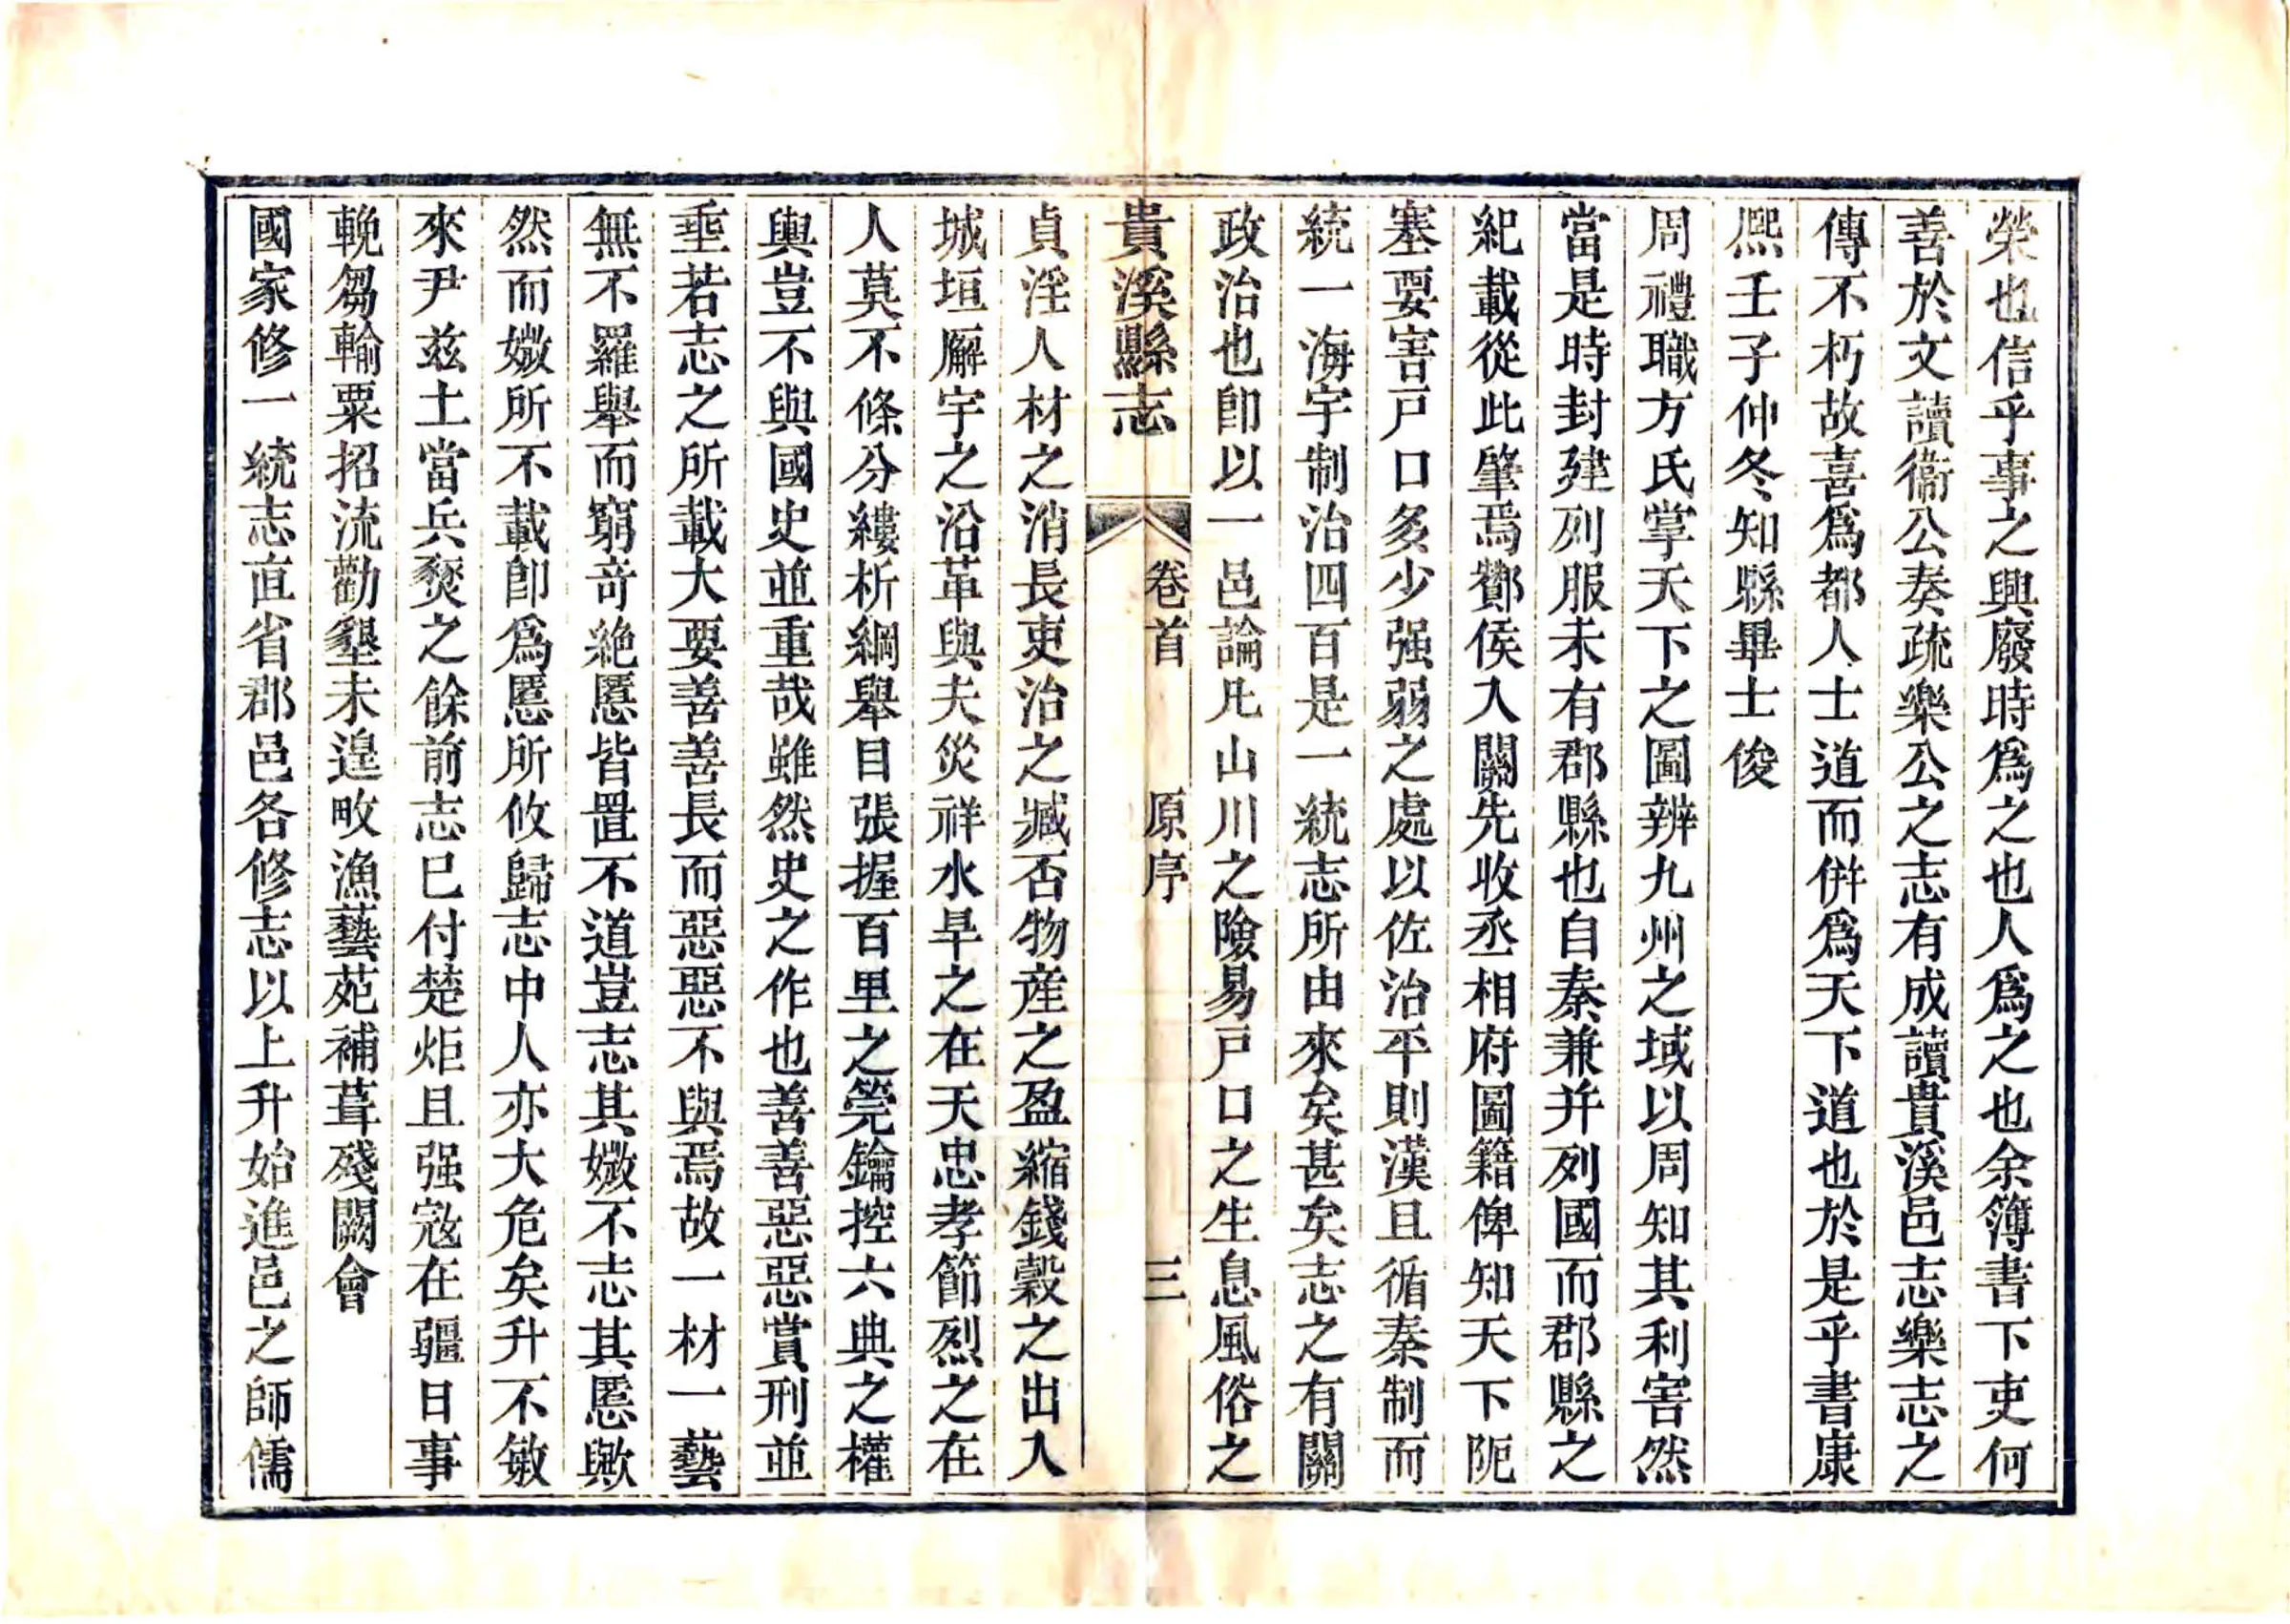 榮也信乎事之興廢時爲之也人爲之也余簿書下吏何
善於文讀衞公奏疏樂公之志有成讀貴溪邑志樂志之
傳不朽故喜爲都人士道而併爲天下道也於是乎書康
熈壬子仲冬知縣畢士俊
周禮職方氏掌天下之圖辨九州之域以周知其利害然
當是時封建列服未有郡縣也自秦兼并列國而郡縣之
紀載從此肇焉酇侯入關先收丞相府圖籍俾知天下阨
塞要害戸口多少强弱之處以佐治平則漢且循秦制而
統一海宇制治四百是一統志所由來矣甚矣志之有關
政治也卽以一邑論凡山川之險易戸口之生息風俗之
貴溪縣志
卷首
原序
三
貞淫人材之消長吏治之臧否物産之盈縮錢穀之出入
城垣廨宇之沿革與夫災祥水旱之在天忠孝節烈之在
人莫不條分縷析綱舉目張握百里之筦鑰控六典之權
輿豈不與國史並重哉雖然史之作也善善惡惡賞刑並
垂若志之所載大要善善長而惡惡不與焉故一材一藝
無不羅舉而窮竒絶慝皆置不道豈志其媺不志其慝歟
然而媺所不載卽爲慝所攸歸志中人亦大危矣升不敏
來尹兹土當兵燹之餘前志已付楚炬且强寇在疆日事
輓芻輸粟招流勸墾未遑畋漁藝苑補葺殘闕會
國家修一統志直省郡邑各修志以上升始進邑之師儒